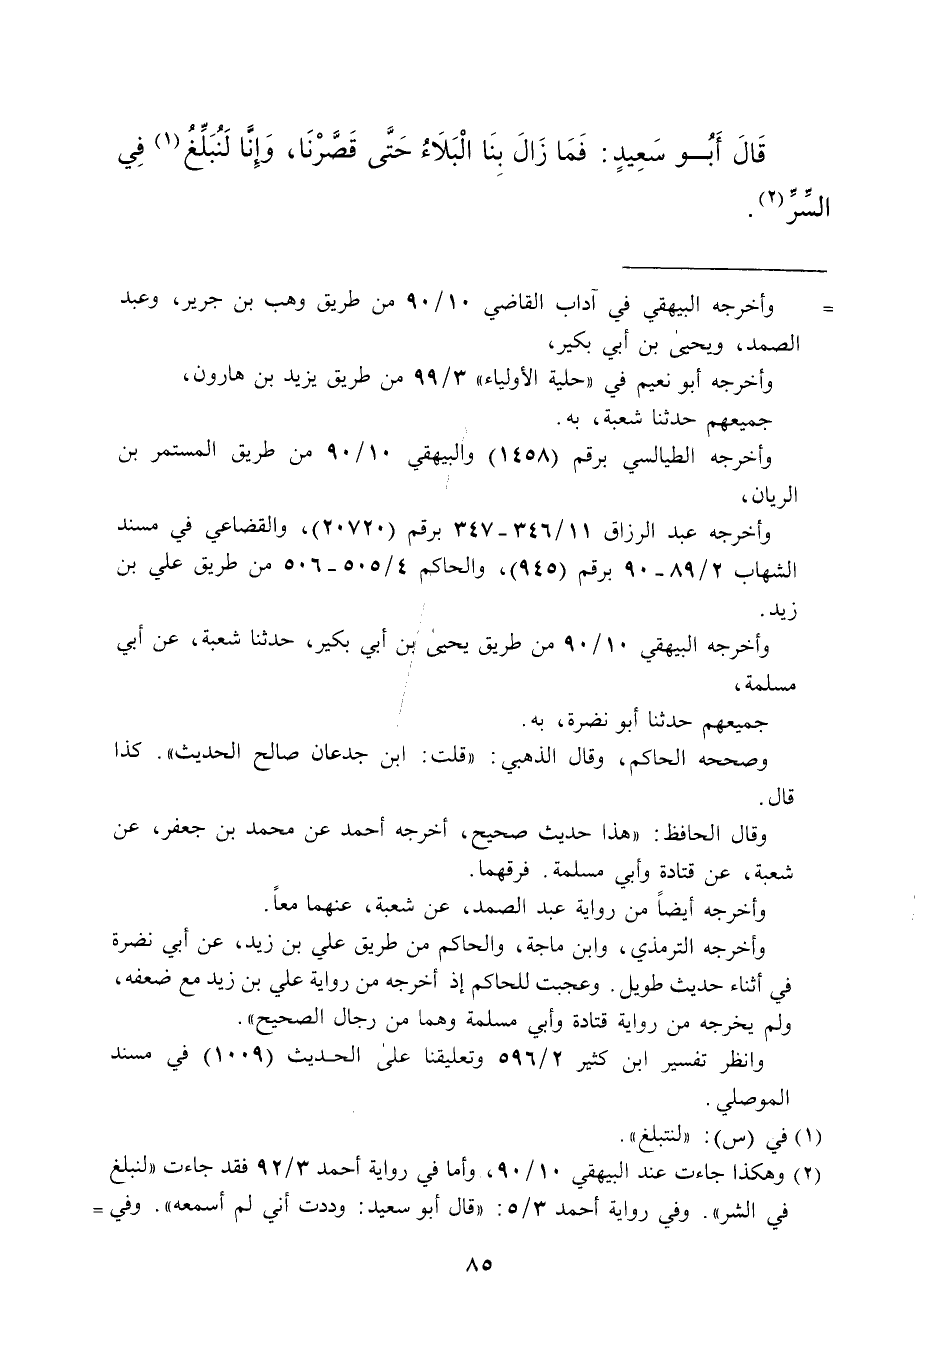 قَالَ أَبُو سَعِيدٍ: فَمَا زَالَ بِنَا الْبَلَاءُ حَتَّى قَصَّرْنَا، وَإِنَّا لَنُبَلِّغُ(١) فِي
السِّرِّ(٢).
= وأخرجه البيهقي في آداب القاضي ٩٠/١٠ من طريق وهب بن جرير، وعبد
الصمد، ويحيىٰ بن أبي بكير،
وأخرجه أبو نعيم في «حلية الأولياء» ٩٩/٣ من طريق يزيد بن هارون،
جميعهم حدثنا شعبة، به.
وأخرجه الطيالسي برقم (١٤٥٨) والبيهقي ٩٠/١٠ من طريق المستمر بن
الريان،
وأخرجه عبد الرزاق ٣٤٦/١١ـ٣٤٧ برقم (٢٠٧٢٠)، والقضاعي في مسند
الشهاب ٨٩/٢ـ٩٠ برقم (٩٤٥)، والحاكم ٥٠٥/٤ـ٥٠٦ من طريق علي بن
زيد.
وأخرجه البيهقي ٩٠/١٠ من طريق يحيىٰ بن أبي بكير، حدثنا شعبة، عن أبي
مسلمة،
جميعهم حدثنا أبو نضرة، به.
وصححه الحاكم، وقال الذهبي: «قلت: ابن جدعان صالح الحديث». كذا
قال.
وقال الحافظ: «هذا حديث صحيح، أخرجه أحمد عن محمد بن جعفر، عن
شعبة، عن قتادة وأبي مسلمة. فرقهما.
وأخرجه أيضاً من رواية عبد الصمد، عن شعبة، عنهما معاً.
وأخرجه الترمذي، وابن ماجة، والحاكم من طريق علي بن زيد، عن أبي نضرة
في أثناء حديث طويل. وعجبت للحاكم إذ أخرجه من رواية علي بن زيد مع ضعفه،
ولم يخرجه من رواية قتادة وأبي مسلمة وهما من رجال الصحيح».
وانظر تفسير ابن كثير ٥٩٦/٢ وتعليقنا علىٰ الحديث (١٠٠٩) في مسند
الموصلي.
(١) في (س): «لنتبلغ».
(٢) وهكذا جاءت عند البيهقي ٩٠/١٠، وأما في رواية أحمد ٩٢/٣ فقد جاءت «لنبلغ
في الشر». وفي رواية أحمد ٥/٣: «قال أبو سعيد: وددت أني لم أسمعه». وفي =
٨٥